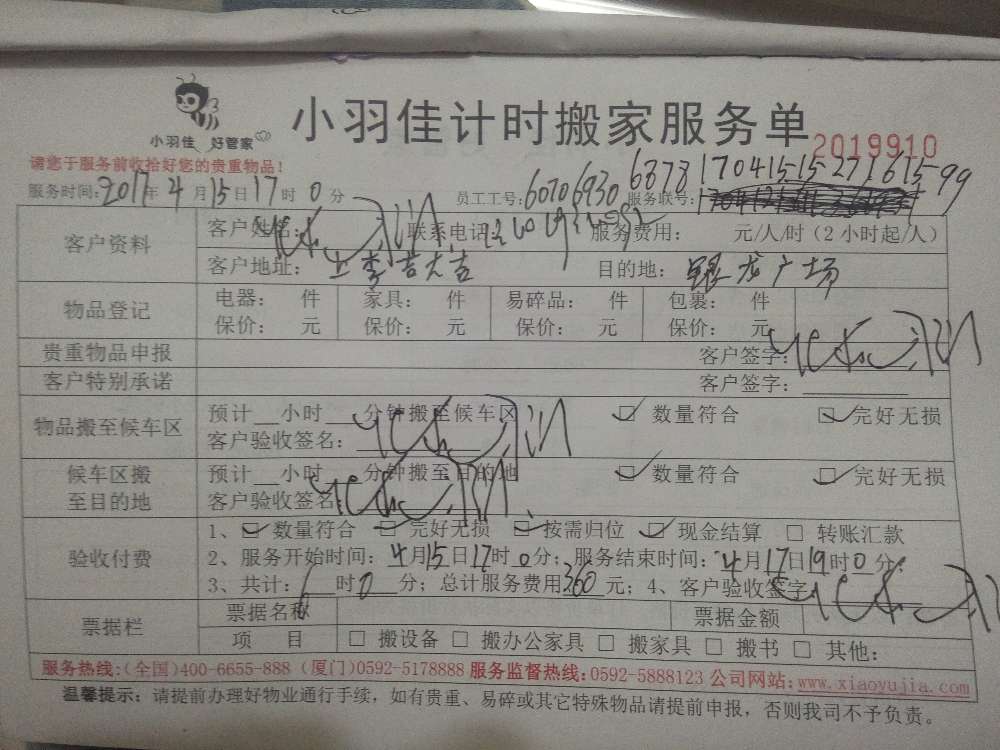 小羽佳 好管家
小羽佳计时搬家服务单
2019910
请您于服务前收拾好您的贵重物品！
服务时间：2017年4月15日17时0分 员工工号：60706930 6878 服务联号：17041515271161599
客户资料 客户姓名： 联系电话： 服务费用： 元/人/时（2小时起/人）
客户地址：上李吉大吉 目的地：银龙广场
物品登记 电器： 件 家具： 件 易碎品： 件 包裹： 件
保价： 元 保价： 元 保价： 元 保价： 元
贵重物品申报 客户签字：
客户特别承诺 客户签字：
物品搬至候车区 预计__小时__分钟搬至候车区 ☑ 数量符合 ☑ 完好无损
客户验收签名：
候车区搬至目的地 预计__小时__分钟搬至目的地 ☑ 数量符合 ☑ 完好无损
客户验收签名
验收付费 1、☑ 数量符合 ☑ 完好无损 ☑ 按需归位 ☑ 现金结算 □ 转账汇款
2、服务开始时间：4月15日17时0分；服务结束时间：4月17日19时0分；
3、共计：6时0分；总计服务费用360元；4、客户验收签字
票据栏 票据名称 票据金额
项 目 □ 搬设备 □ 搬办公家具 □ 搬家具 □ 搬书 □ 其他：
服务热线：（全国）400-6655-888（厦门）0592-5178888 服务监督热线：0592-5888123 公司网站：www.xiaoyujia.com
温馨提示：请提前办理好物业通行手续，如有贵重、易碎或其它特殊物品请提前申报，否则我司不予负责。